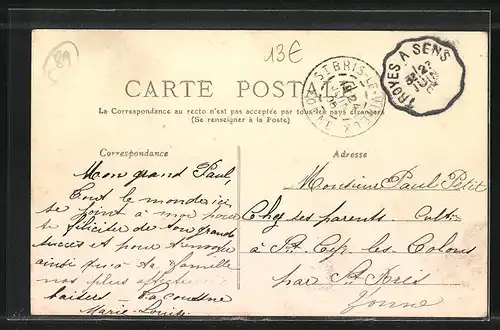 89
13€
CARTE POSTALE
ST BRIS-LE-VINEUX
YONNE
TROYES A SENS
La Correspondance au recto n'est pas acceptée par tous les pays étrangers
(Se renseigner à la Poste)
Correspondance
Adresse
Mon grand Paul,
Tout le monde ici,
se joint à moi pour
te féliciter de ton grand
succès et pour t'envoyer
ainsi qu'à ta famille
nos plus affectueux
baisers Ta cousine
Marie-Louise
Monsieur Paul Petit
Chez ses parents Cult
à St Cyr les Colons
par St Bris
Yonne